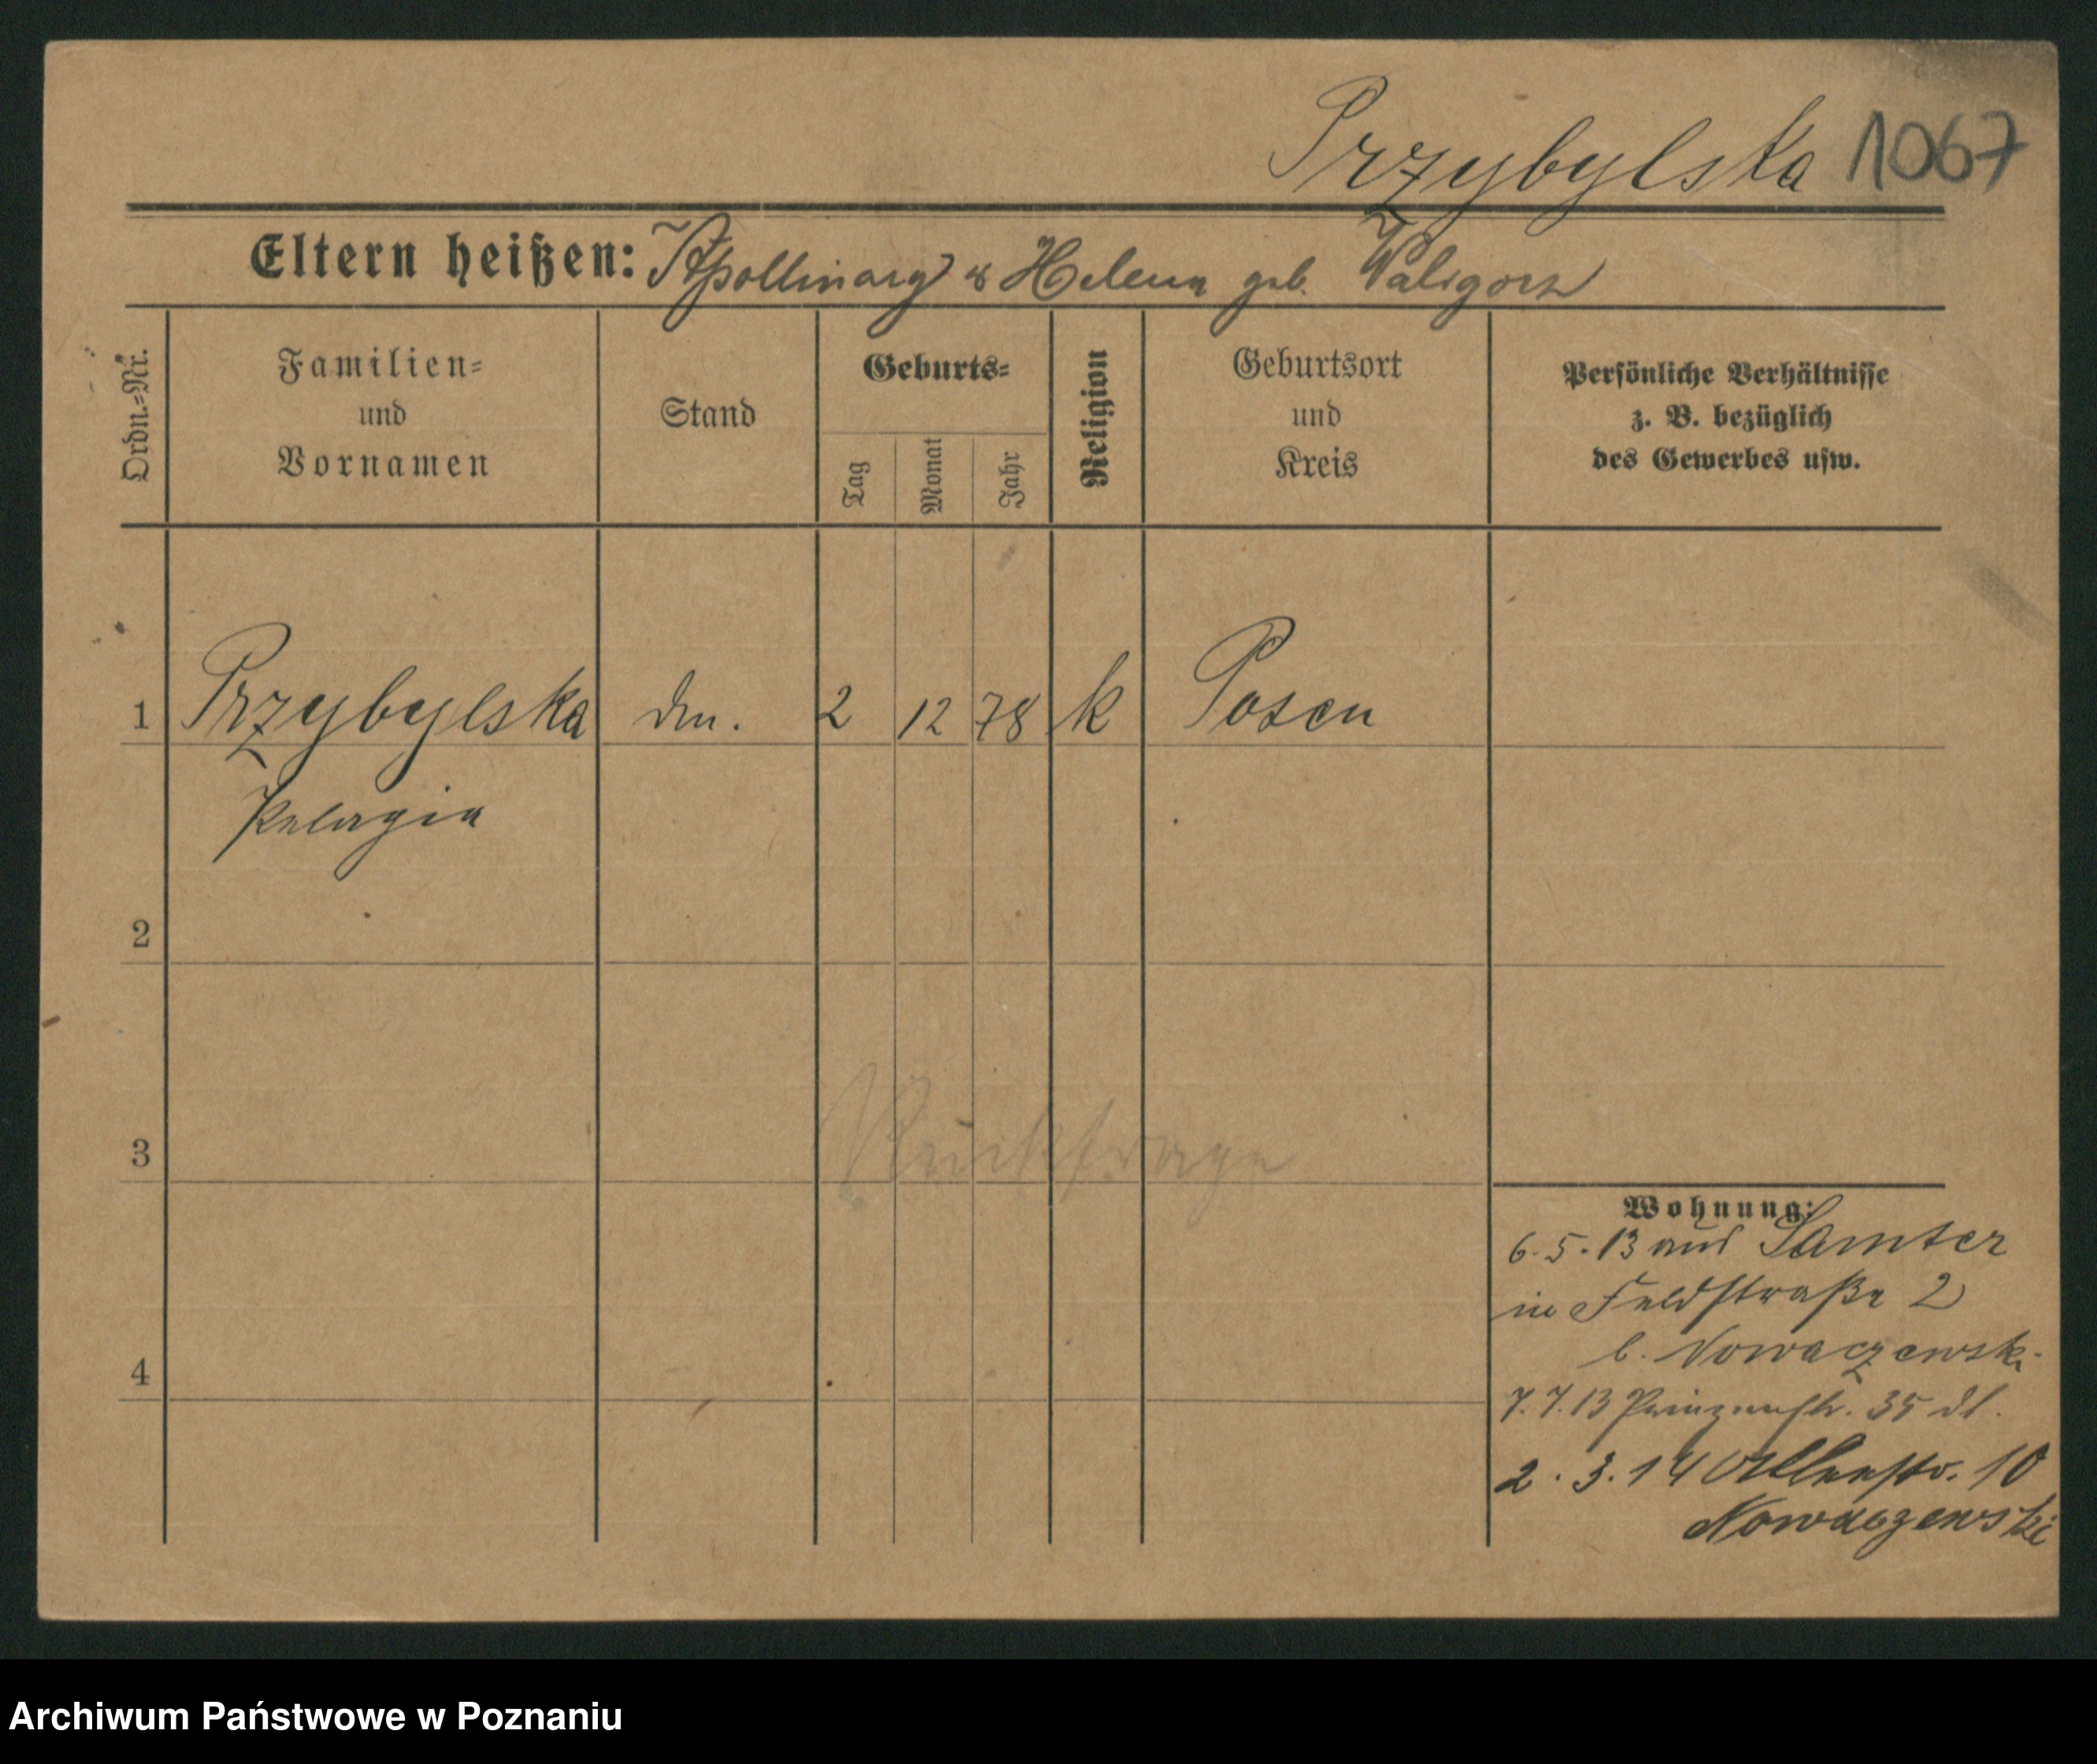 Przybylska 1067
Eltern heißen: Apollinary & Helena geb. Waligora
Ordn.-Nr.
Familien-
und
Vornamen
Stand
Geburts-
Tag
Monat
Jahr
Religion
Geburtsort
und
Kreis
Persönliche Verhältnisse
z. B. bezüglich
des Gewerbes usw.
1 Przybylska 2 12 78 k Posen
Pelagia
2
3
Rückfrage
Wohnung:
6.5.13 aus Samter
in Feldstraße 2
b. Nowaczewski
4
7.7.13 Prinzenstr. 35
2.3.14 10
Nowaczewski
Archiwum Państwowe w Poznaniu